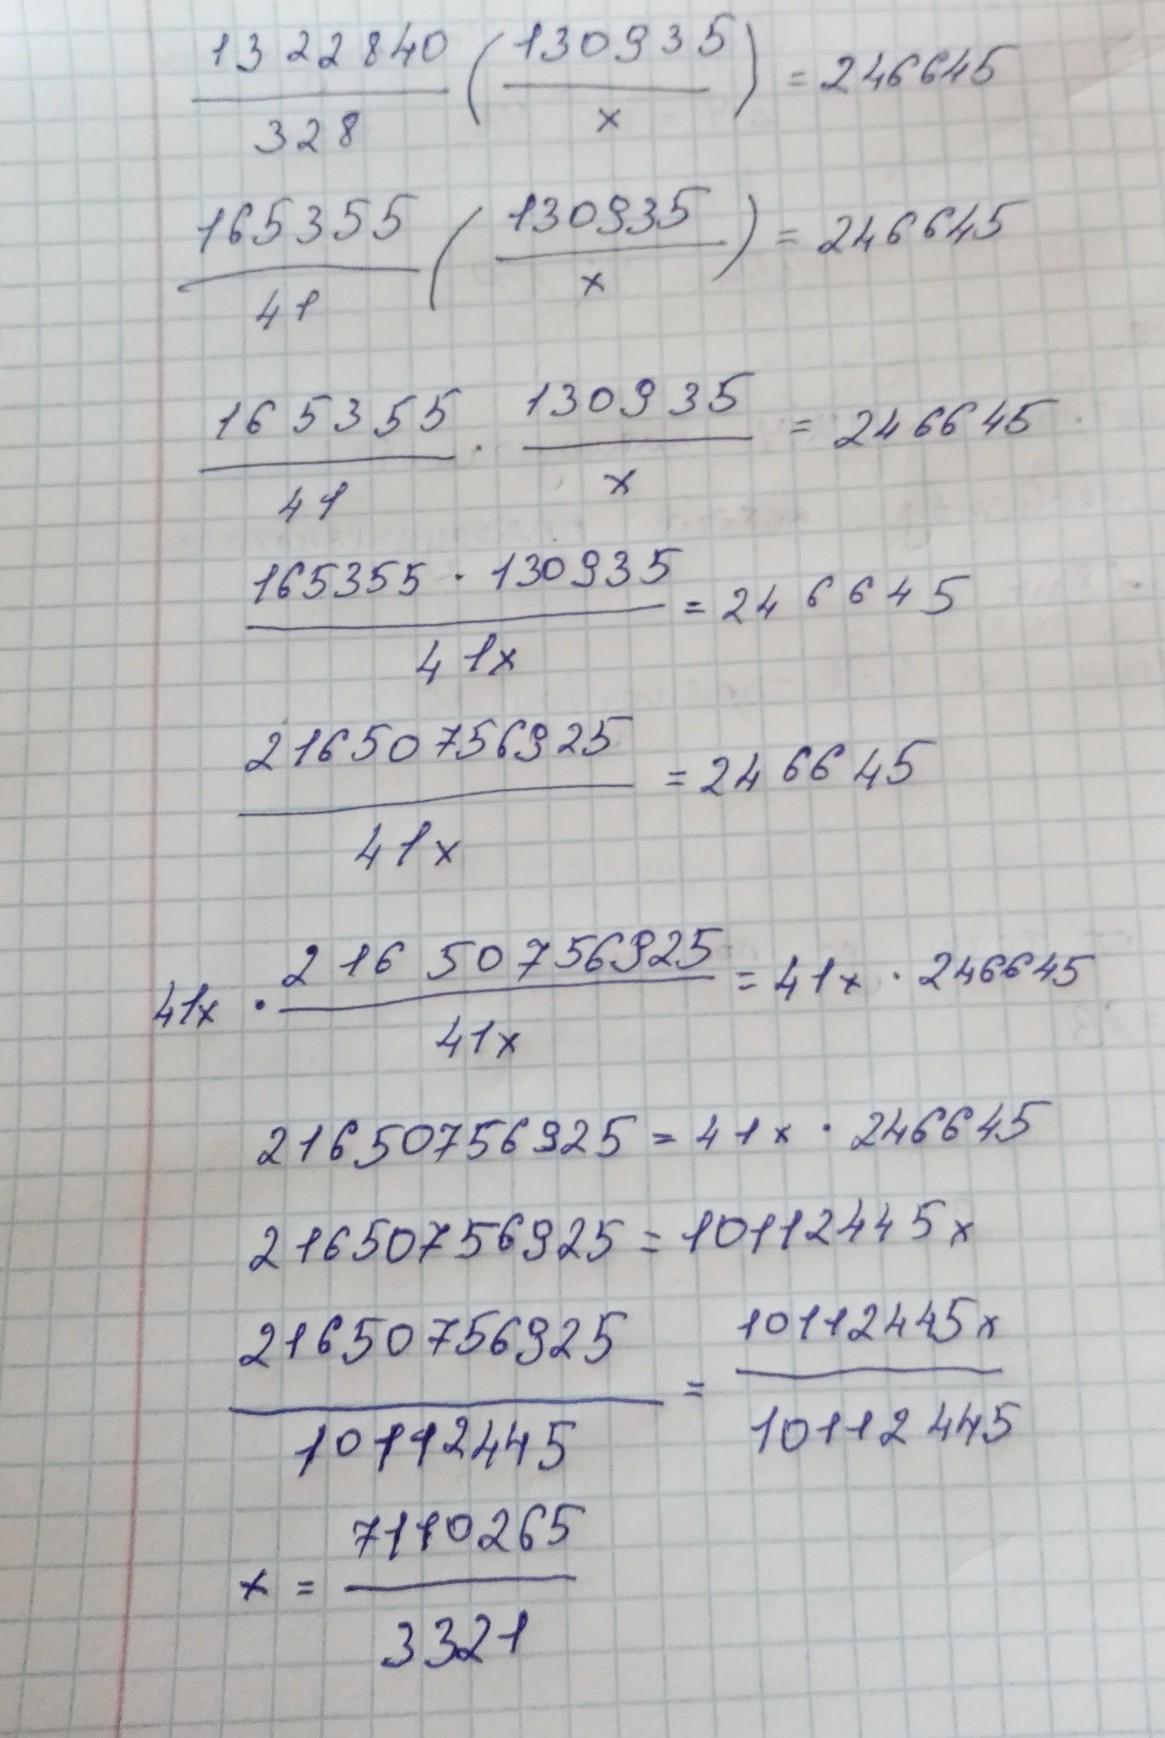 1322840/328 (130935/x) = 246645
165355/41 (130935/x) = 246645
165355/41 · 130935/x = 246645
165355 · 130935/41x = 246645
21650756925/41x = 246645
41x · 21650756925/41x = 41x · 246645
21650756925 = 41x · 246645
21650756925 = 10112445x
21650756925/10112445 = 10112445x/10112445
x = 7110265/3321